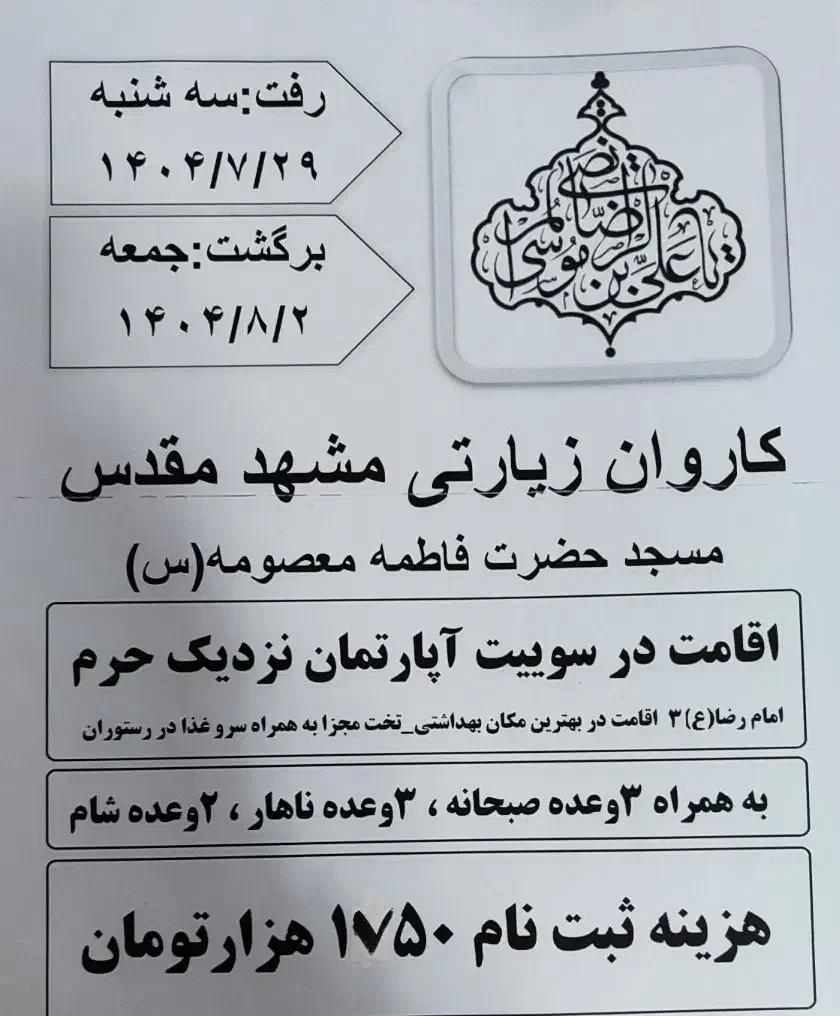 رفت:سه شنبه
۱۴۰۴/۷/۲۹
برگشت:جمعه
۱۴۰۴/۸/۲
یا علی بن موسی الرضا المرتضی
کاروان زیارتی مشهد مقدس
مسجد حضرت فاطمه معصومه(س)
اقامت در سوییت آپارتمان نزدیک حرم
امام رضا(ع) ۳ اقامت در بهترین مکان بهداشتی_تخت مجزا به همراه سرو غذا در رستوران
به همراه ۳وعده صبحانه ، ۳وعده ناهار ، ۲وعده شام
هزینه ثبت نام ۱۷۵۰ هزارتومان